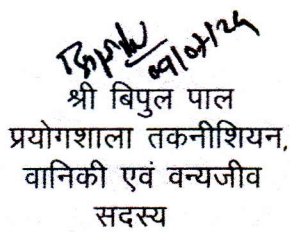 09/07/24
श्री बिपुल पाल
प्रयोगशाला तकनीशियन,
वानिकी एवं वन्यजीव
सदस्य